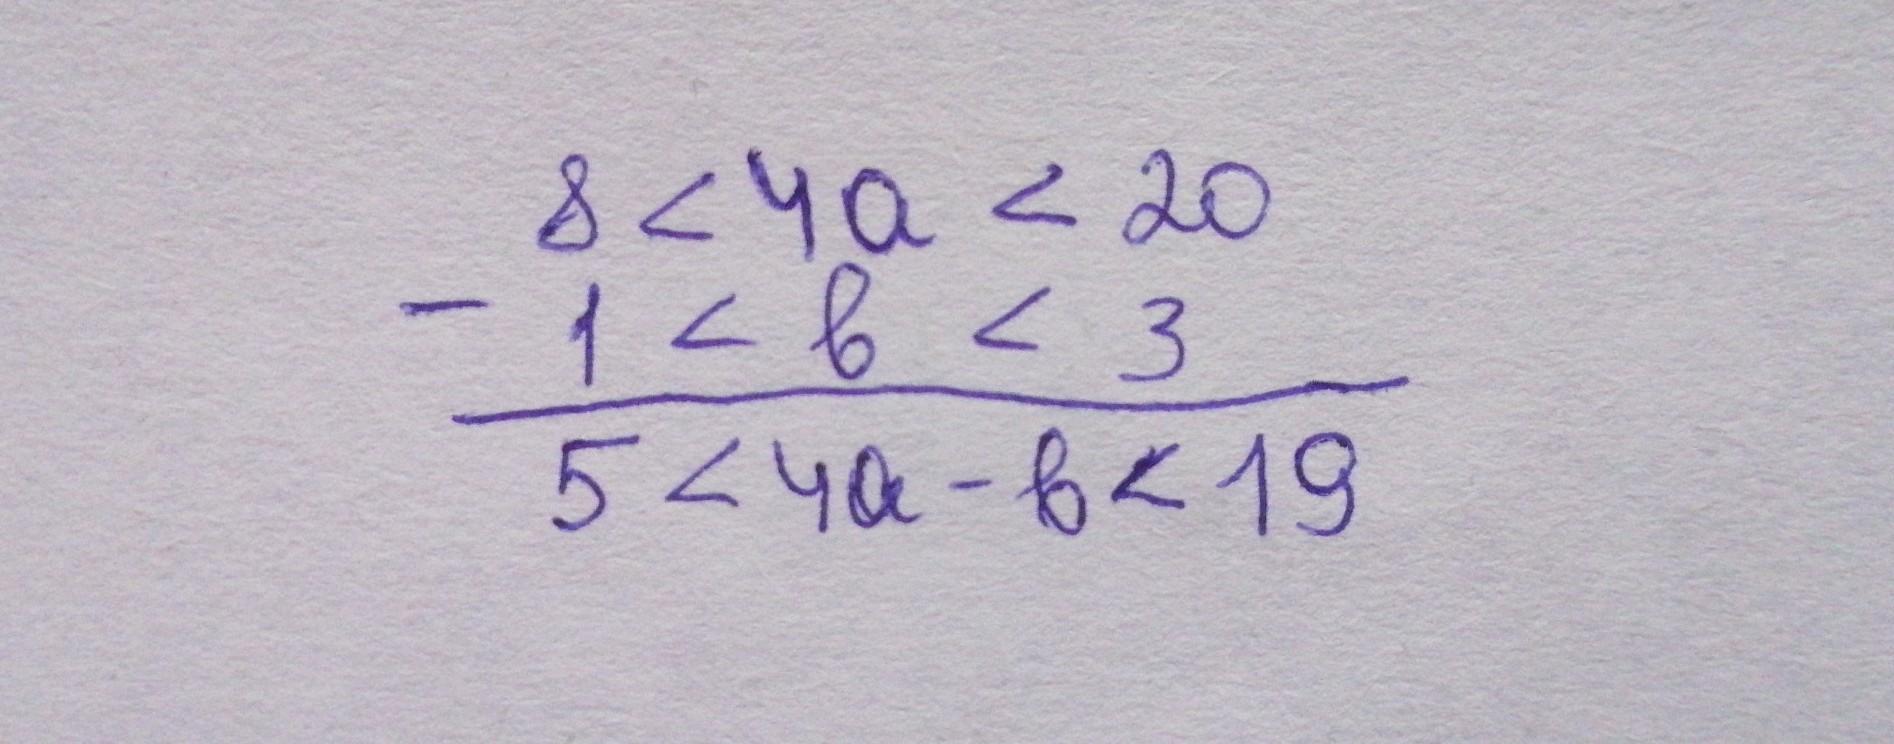 8 < 4a < 20
- 1 < b < 3
5 < 4a - b < 19